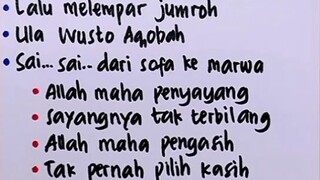 • Lalu melempar jumroh
• Ula Wusto Aqobah
• Sai... sai.. dari sofa ke marwa
• Allah maha penyayang
• sayangnya tak terbilang
• Allah maha pengasih
• Tak pernah pilih kasih